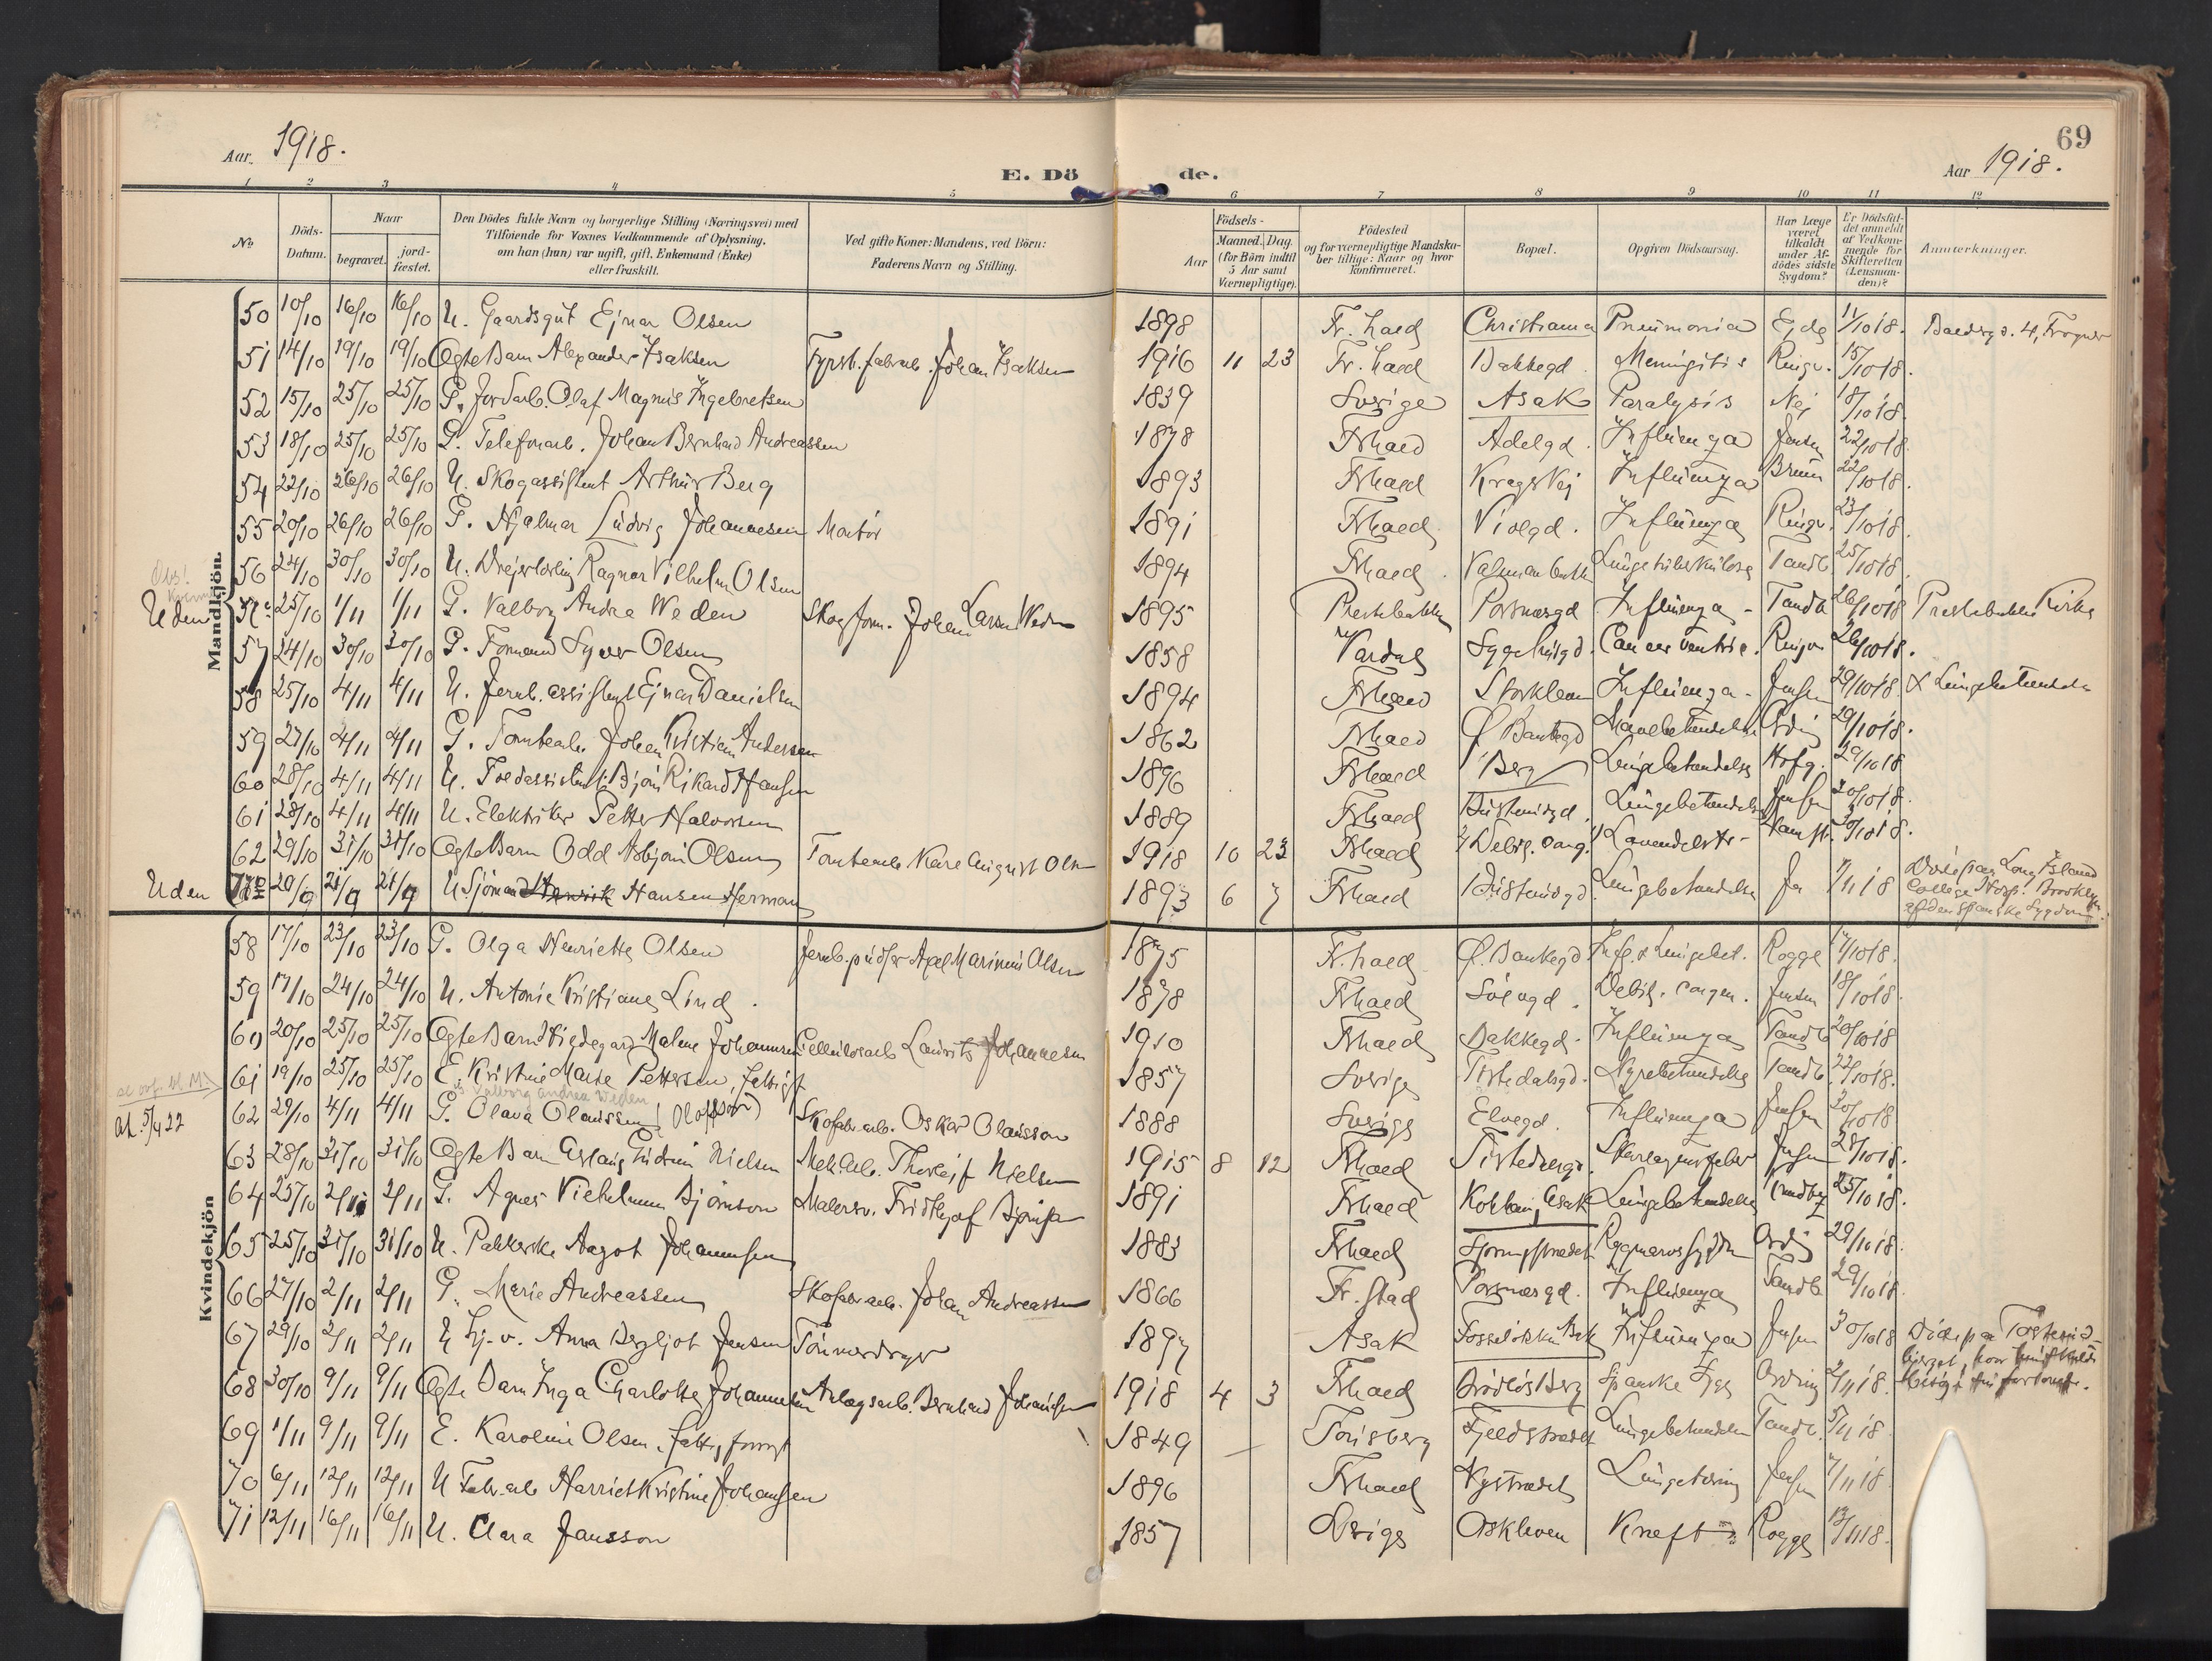 69
Aar. 1918.
E. Döde.
Aar 1918.
1 2 3 4 5 6 7 8 9 10 11 12
No
Döds-Datum.
Naar
begravet.
jord-fæstet.
Den Dödes fulde Navn og borgerlige Stilling (Næringsvei) med
Tilföiende for Voxnes Vedkommende af Oplysning,
om han (hun) var ugift, gift, Enkemand (Enke)
eller fraskilt.
Ved gifte Koner: Mandens, ved Börn:
Faderens Navn og Stilling.
Födsels-
Aar
Maaned. Dag.
(for Börn indtil
5 Aar samt
Værnepligtige).
Födested
og for værnepligtige Mandska-
ber tillige: Naar og hvor
konfirmeret.
Bopæl.
Opgiven Dödsaarsag.
Har Læge
været
tilkaldt
under Af-
dödes sidste
Sygdom?
Er Dödsfal-
det anmeldt
af Vedkom-
mende for
Skifteretten
(Lensman-
den)?
Anmærkninger.
Mandkjön
50 10/10 16/10 16/10 U. Gaardsgut Ejnar Olsen 1898 Fr.hald Christiania Pneumonia Egde 11/10 18.
51 14/10 19/10 19/10 Ægte Barn Alexander Isaksen Fyrst.fabrarb. Johan Isaksen 1916 11 23 Fr.hald Bakkegd. Meningitis Ringv. 15/10 18.
52 15/10 25/10 25/10 G. Jordarb. Olaf Magnus Ingebretsen 1839 Sverige Asak Paralysis Nej 18/10 18.
53 18/10 25/10 25/10 G. Telefonarb. Johan Bernhard Andreassen 1878 Frhald Adelgd. Influenza Jensen 22/10 18.
54 22/10 26/10 26/10 U. Skogassistent Arthur Berg 1893 Frhald Krags Vej Influenza Bruun 22/10 18.
55 20/10 26/10 26/10 G. Hjalmar Ludvig Johannesen Montör 1891 Frhald Violgd. Influenza Ringv. 23/10 18.
56 24/10 30/10 30/10 U. Drejerlærling Ragnar Vilhelm Olsen 1894 Frhald Lungetuberkulose Tandb. 25/10 18.
Obs! Kvinne
Uden 25/10 1/11 1/11 G. Valborg Andrea Weden Skogform. Johan Larsen Weden 1895 Prestebakke Porsnæsgd Influenza Tandb. 26/10 18 Prestebakke Kirke
57 24/10 30/10 30/10 G. Formand Syver Olsen 1858 Vardal Sygehusgd. Cancer ventric. Ringv. 26/10 18.
58 25/10 4/11 4/11 U. Jernb.assistent Ejnar Danielsen 1894 Frhald Influenza Jensen 29/10 18 & Lungebetændelse
59 27/10 4/11 4/11 G. Tomtearb. Johan Kristian Andersen 1862 Frhald Ø. Bankegd 29/10 18.
60 28/10 4/11 4/11 U. Toldassistent Bjørn Rikard Hansen 1896 Frhald Berg Lungebetændelse Hofg. 29/10 18
61 28/10 4/11 4/11 U. Elektriker Petter Halvorsen 1889 Frhald Lungebetændelse Jensen 30/10 18.
62 29/10 31/10 31/10 Ægte Barn Odd Asbjørn Olsen Tomtearb. Kare August Olsen 1918 10 23 Frhald Debil. cong. 30/10 18.
Uden 20/9 21/9 21/9 U. Sjömand Henrik Hansen Herman 1893 6 7 Frhald Lungebetændelse Ja 7/11 18 Döde paa Long Island
College Hosp. Brooklyn
af den spanske Sygdom.
Kvindekjön
58 17/10 23/10 23/10 G. Olga Henriette Olsen Jernb.pudser Axel Marinius Olsen 1875 Fr.hald Ø. Bankegd Infl. & Lungebet. Rogge 17/10 18.
59 17/10 24/10 24/10 U. Antonie Kristiane Lind. 1878 Frhald Debil. congen. Jensen 18/10 18.
60 20/10 25/10 25/10 Ægte Barn Hildegard Malene Johannesen Cellulosearb. Laurits Johannesen 1910 Frhald Bakkegd. Influenza Tandb 20/10 18
61 19/10 25/10 25/10 E. Kristine Marie Pettersen, fattigf 1857 Sverige Tistedalsgd. Nyrebetændelse Tandb. 22/10 18.
Valborg Andrea Weden
At. 5/4 22
62 29/10 4/11 4/11 G. Olava Olaussen (Oloffson) Skofabr.arb. Oskar Olausson 1888 Sverige Elvegd. Influenza Jensen 30/10 18
63 28/10 31/10 31/10 Ægte Barn Aslaug Gudrun Nielsen Mek.Arb. Thorleif Nielsen 1915 8 12 Frhald Skarlagensfeber Jensen 28/10 18.
64 25/10 2/11 2/11 G. Agnes Vilhelmine Bjørnson Malersv. Fridthjof Bjørnson 1891 Frhald Asak Lungebetændelse 25/10 18.
65 25/10 31/10 31/10 U. Pakkerske Aagot Johannesen 1883 Frhald Rygmarvssygdom Ording 29/10 18.
66 27/10 2/11 2/11 G. Marie Andreassen Skofabr.arb. Johan Andreassen 1866 Fr.stad Porsnæsgd. Influenza Tandb. 29/10 18.
67 29/10 2/11 2/11 U. Anna Bergljot Jensen Tömmerdrager 1897 Asak Influenza Jensen 30/10 18
68 30/10 9/11 9/11 Ægte Barn Inga Charlotte Johannesen Anlægsarb. Bernhard Johansen 1918 4 3 Frhald Brödløs Berg Spanske Syge Ording 2/11 18.
69 1/11 9/11 9/11 E. Karoline Olsen, fattigforsørgt 1849 Fjeldstrædet Lungebetændelse Tandb. 5/11 18
70 6/11 12/11 12/11 U. Fabr.arb Harriet Kristine Johansen 1896 Frhald Nystrædet Lungetæring Jensen 7/11 18
71 12/11 16/11 16/11 U. Clara Jansson 1857 Sverige Kræft Rogge 13/11 18.